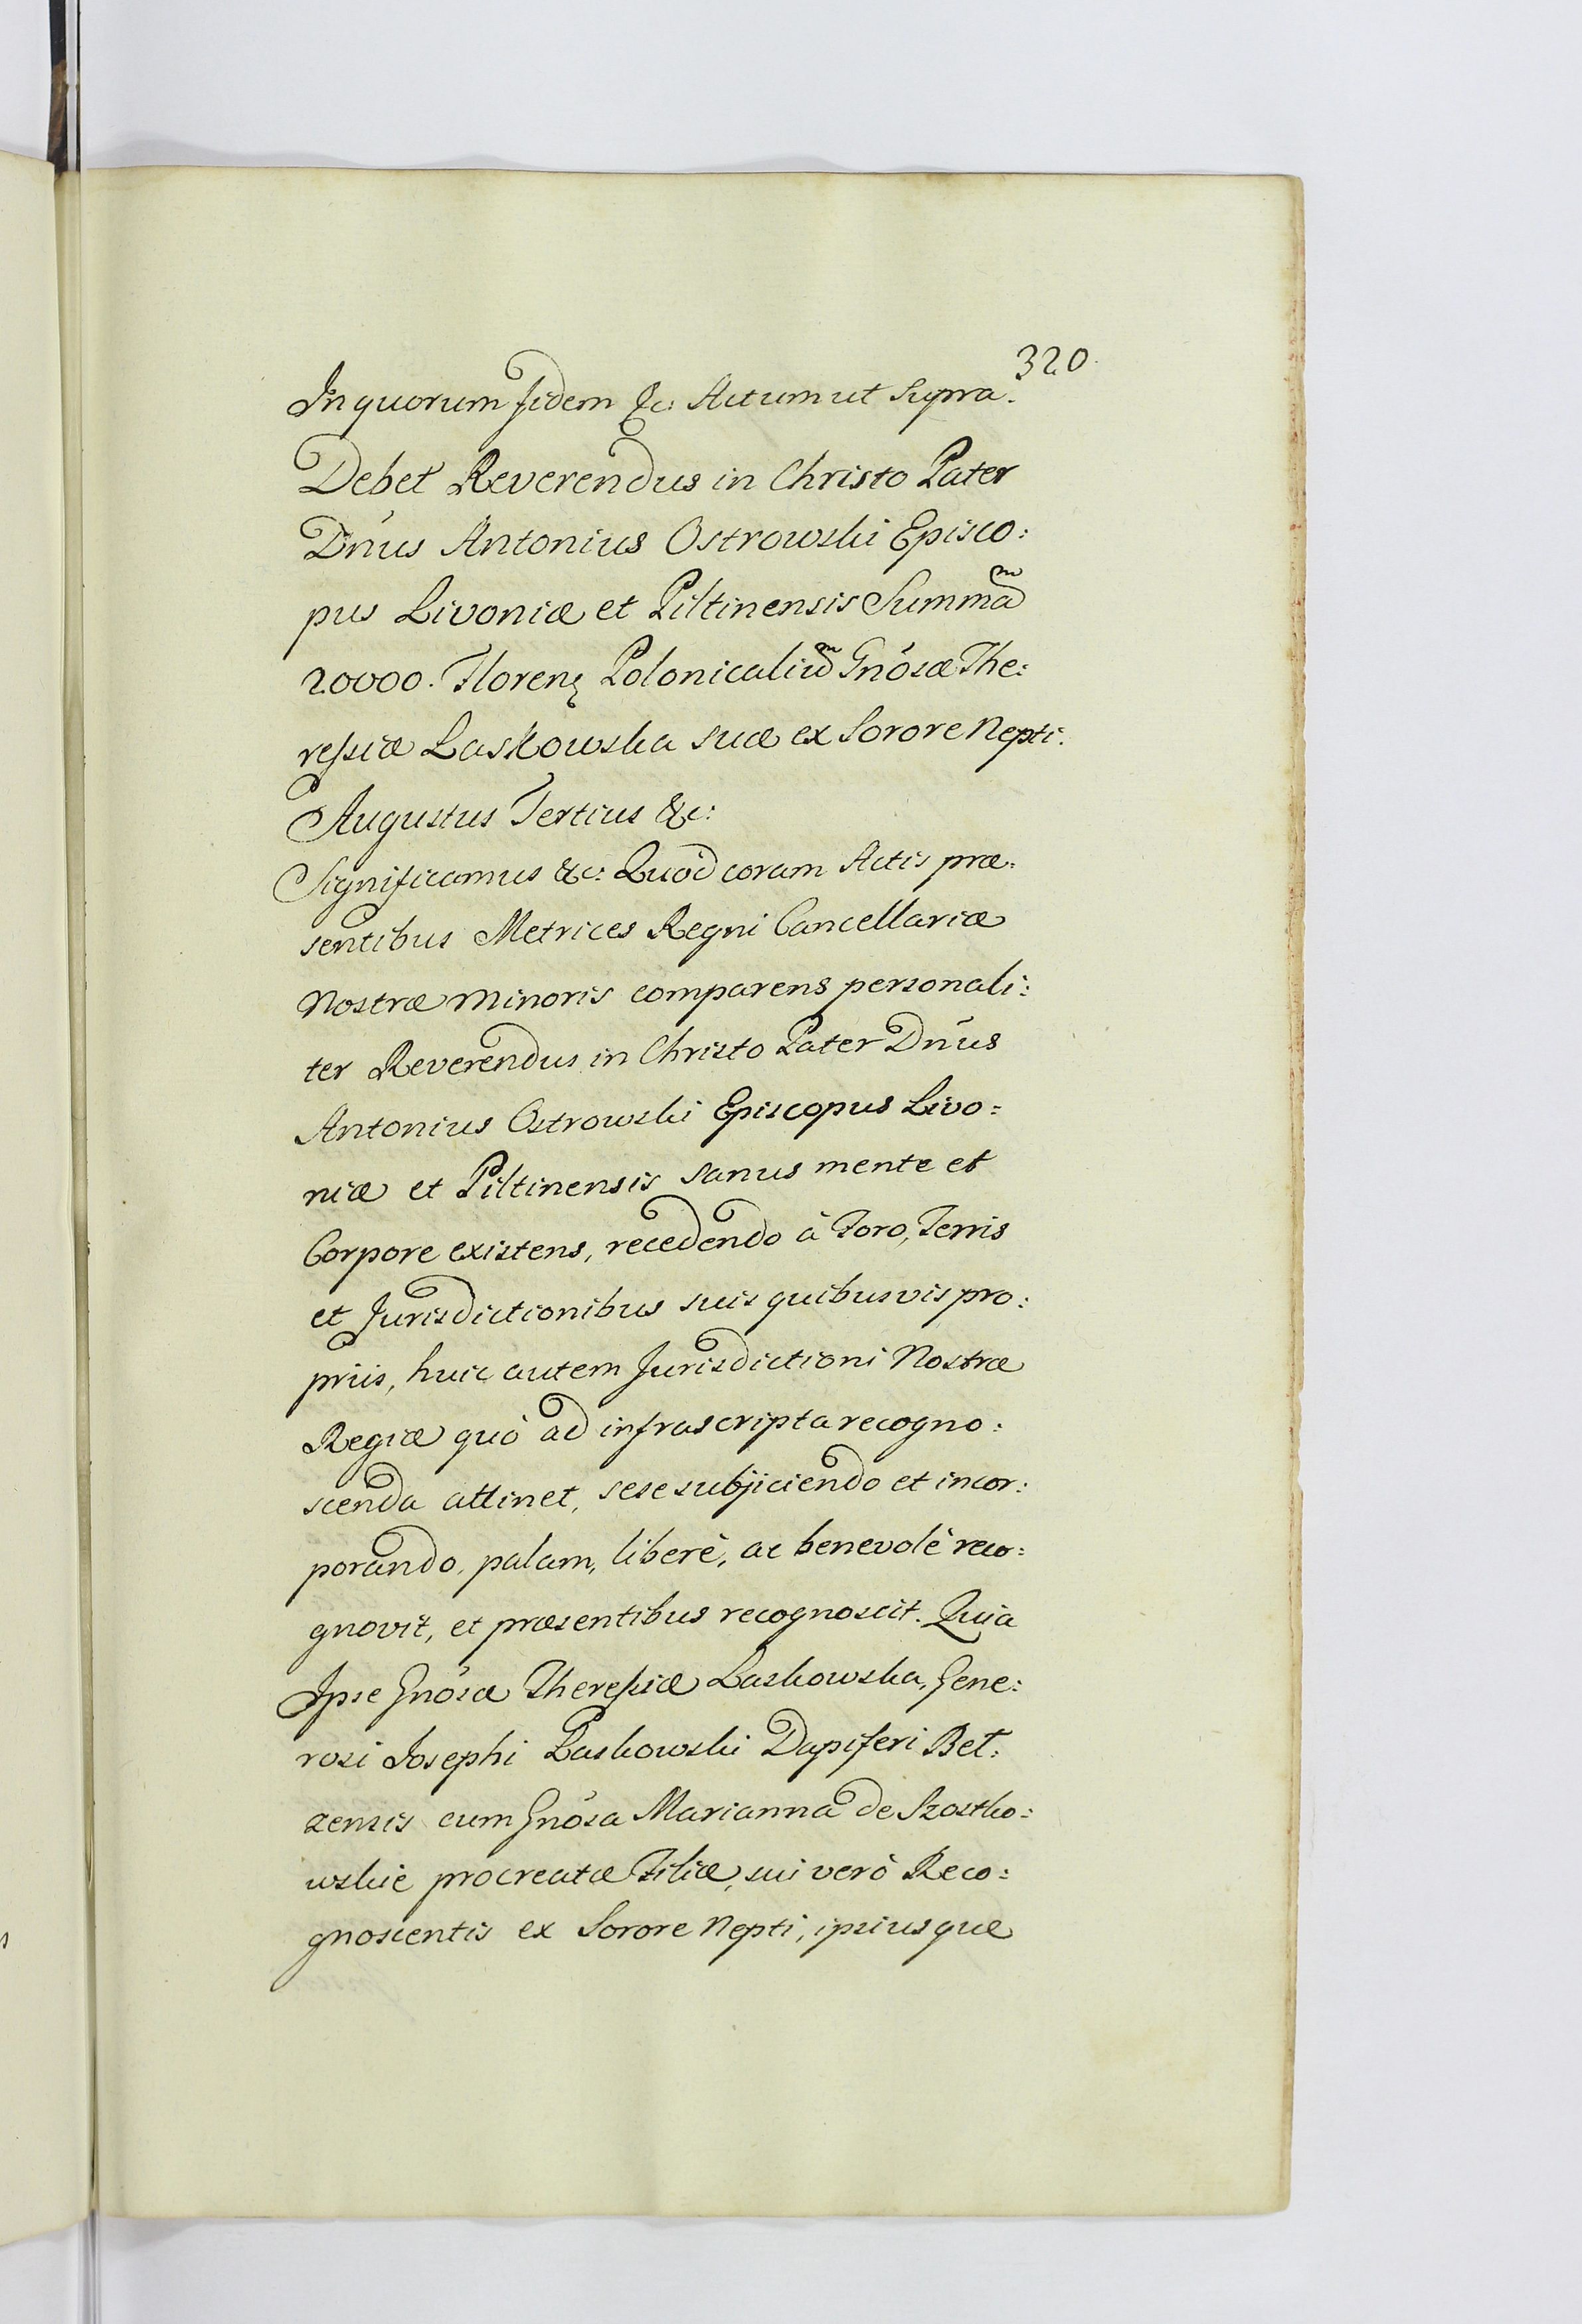 320.
In quorum fidem &c: Actum ut supra.
Debet Reverendus in Christo Pater
Dn̄us Antonius Ostrowski Episco:
pus Livoniæ et Piltinensis Summaᵐ
20000. Floren: Polonicaliuᵐ Gnōsæ The:
ressiæ Laskowska suæ ex Sorore Nepti.
Augustus Tertius &c:
Significamus &c: Quod coram Actis præ:
sentibus Metrices Regni Cancellariæ
Nostræ Minoris comparens personali:
ter Reverendus in Christo Pater Dn̄us
Antonius Ostrowski Episcopus Livo:
niæ et Piltinensis sanus mente et
Corpore existens, recedendo à Foro, Terris
et Jurisdictionibus suis quibusvis pro:
priis, huic autem Jurisdictioni Nostræ
Regiæ quò ad infrascripta recogno:
scenda attinet, sese subjiciendo et incor:
porando, palam, liberè, ac benevolè reco:
gnovit, et præsentibus recognoscit. Quia
Ipse Gnōsæ Theressiæ Laskowska, Gene:
rosi Josephi Laskowski Dapiferi Bel:
zensis cum Gnōsa Marianna de Szostko:
wskie procreatæ Filiæ, sui verò Reco:
gnoscentis ex Sorore Nepti, ipsiusque